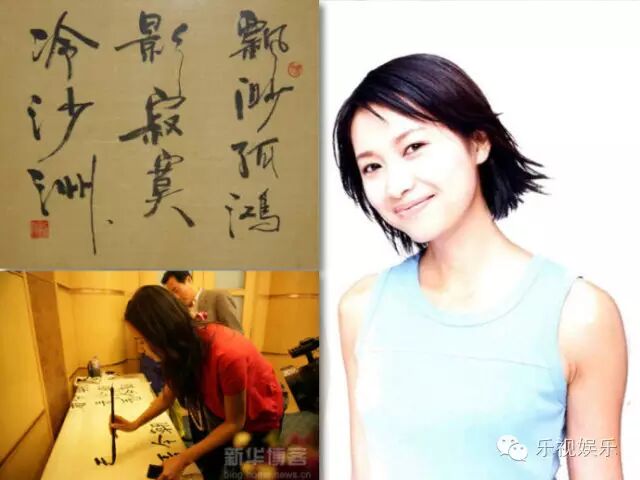 飄渺孤鴻
影寂寞
冷沙洲
新华博客
home.news.cn
乐视娱乐